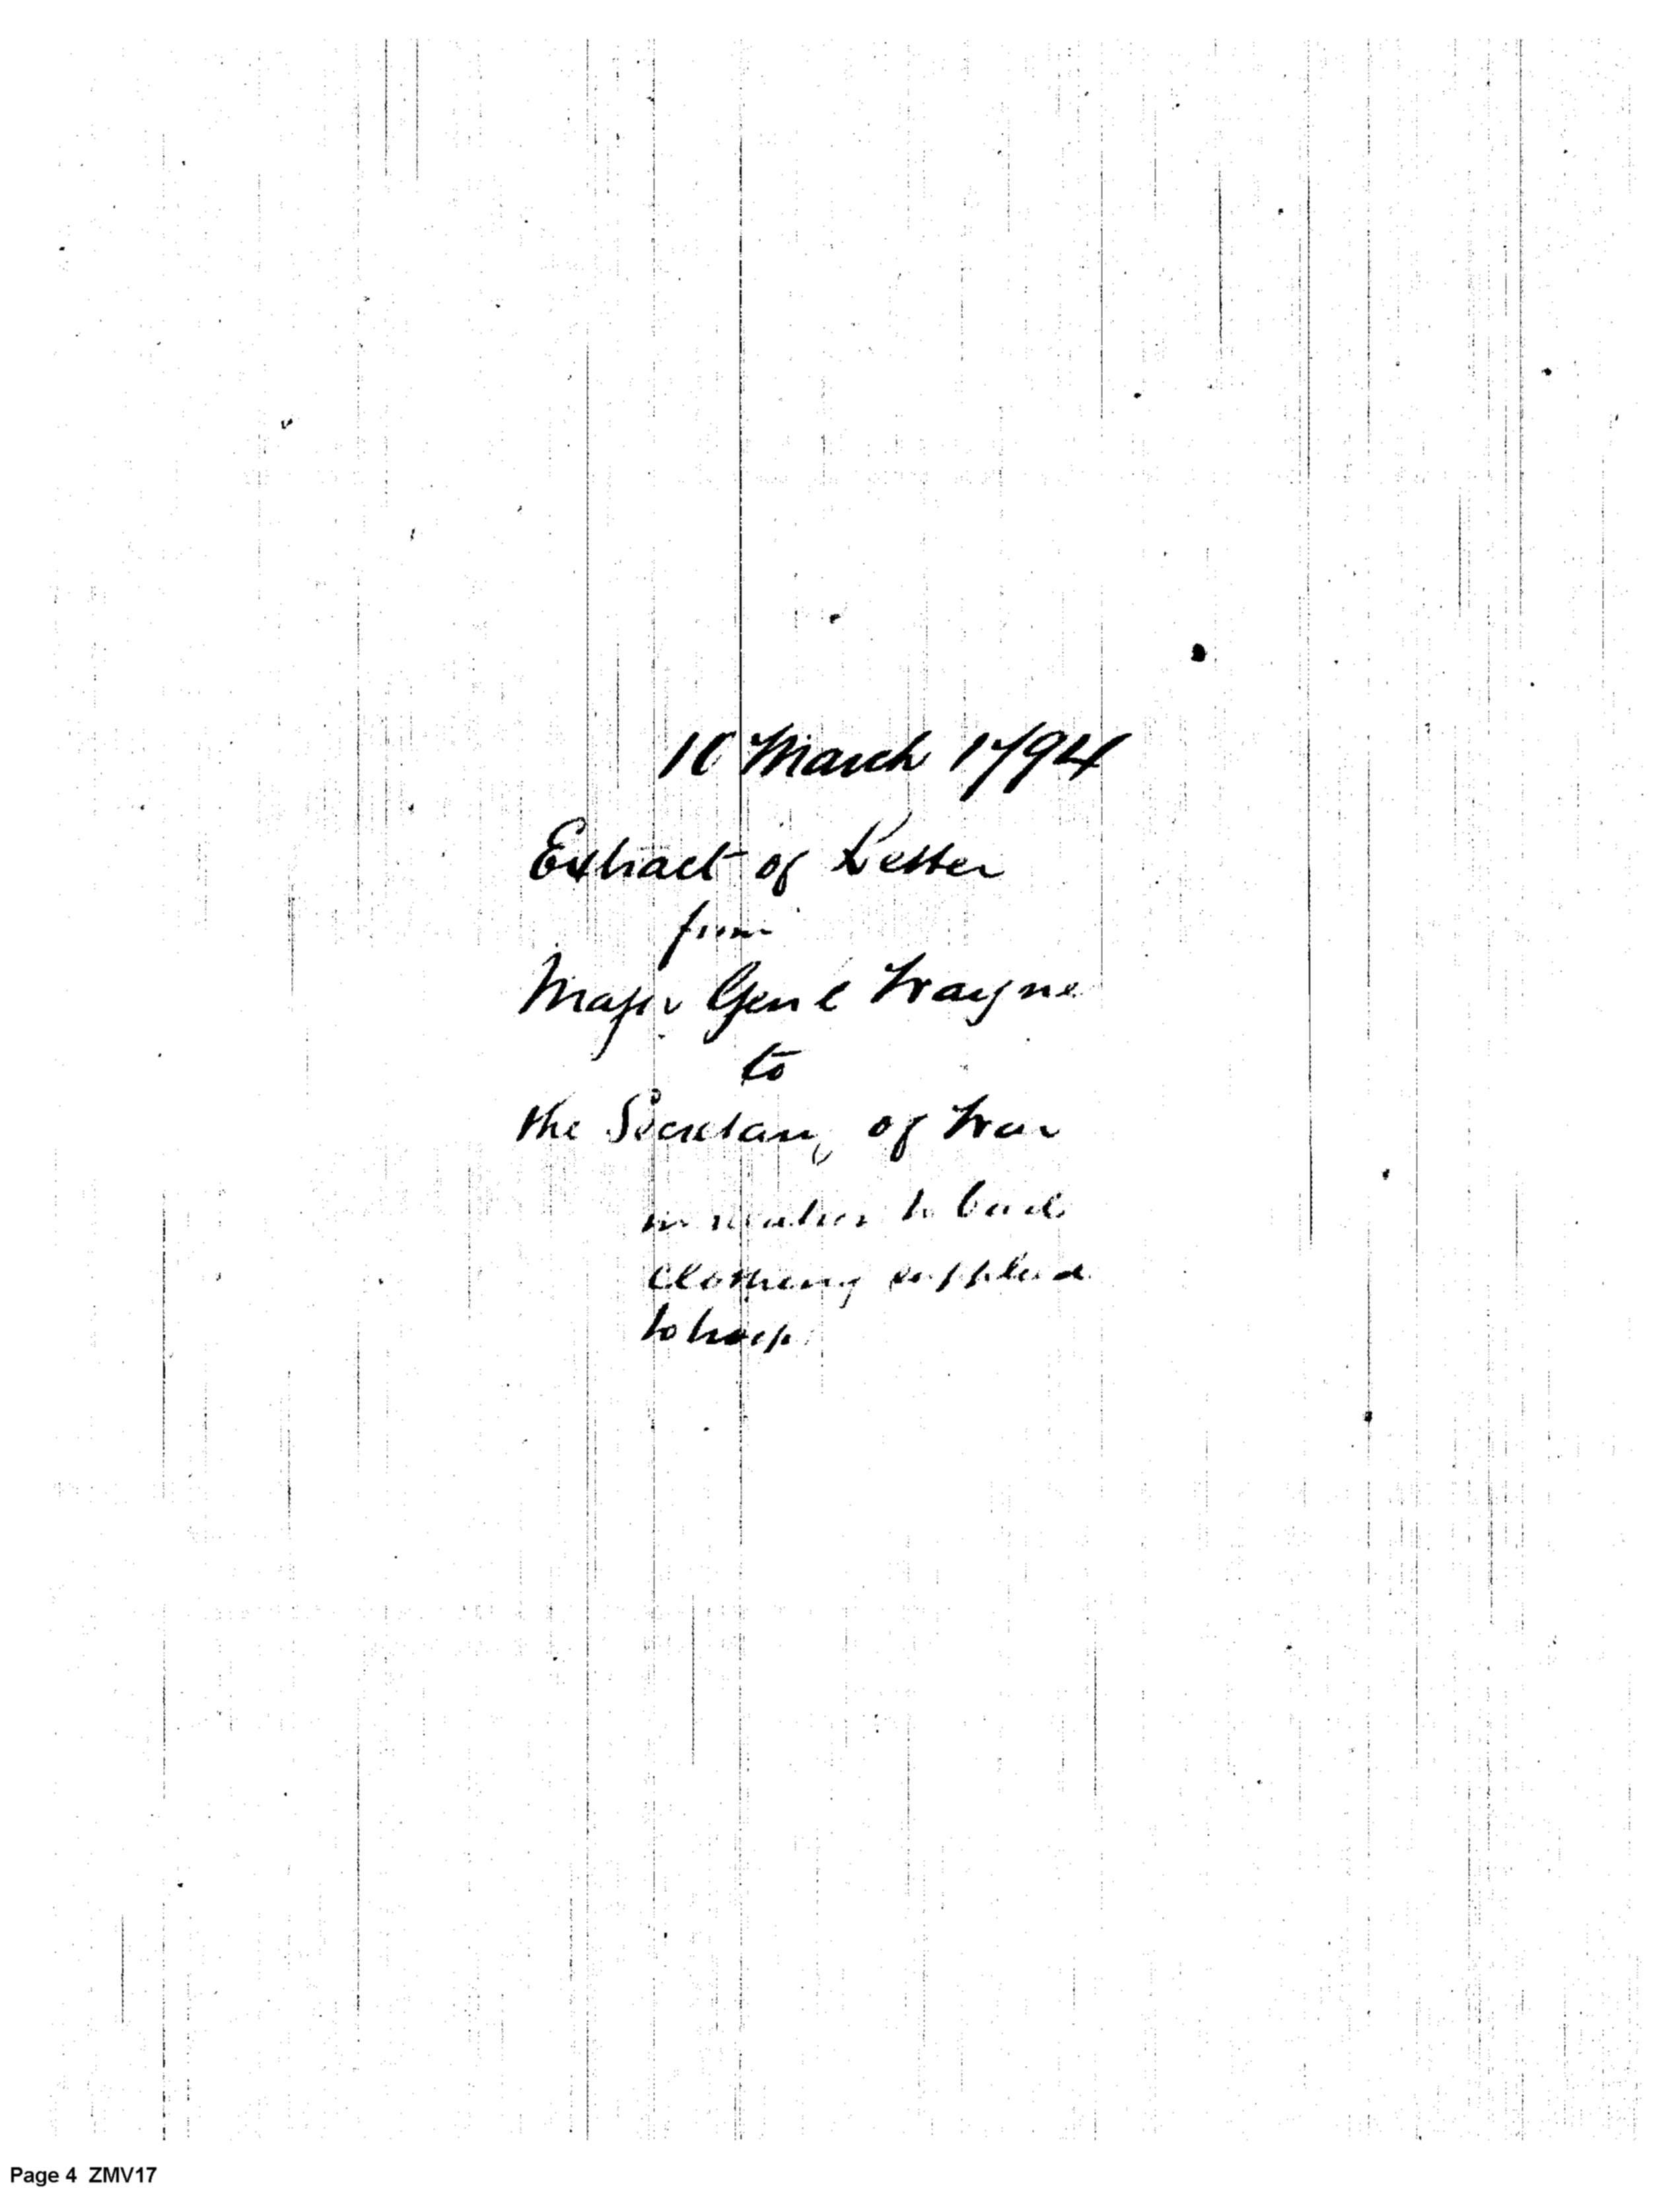 10 March 1794
Extract of Letter
from
Major Genl Wayne
to
the Secretary of War
in relation to bad
clothing supplied
to troops
Page 4 ZMV17